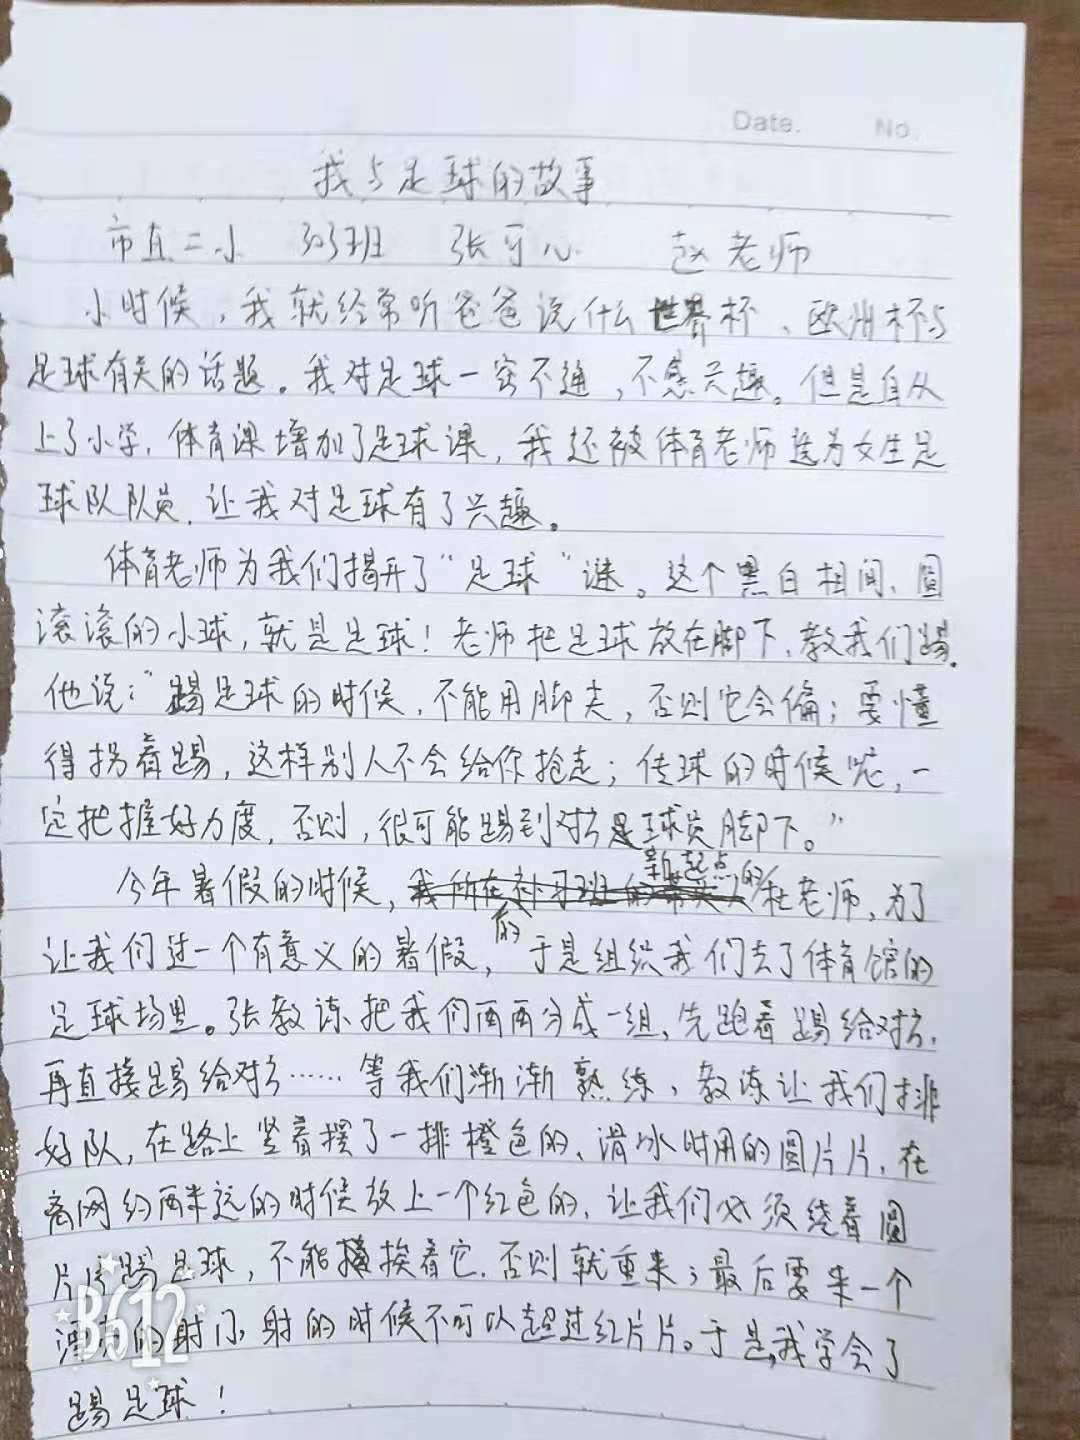 Date. No.
我与足球的故事
市直二小 班 张可心 赵老师
小时候，我就经常听爸爸说什么世界杯、欧州杯与
足球有关的话题。我对足球一窍不通，不感兴趣。但是自从
上了小学，体育课增加了足球课，我还被体育老师选为女生足
球队队员，让我对足球有了兴趣。
体育老师为我们揭开了“足球”谜。这个黑白相间、圆
滚滚的小球，就是足球！老师把足球放在脚下，教我们踢。
他说：“踢足球的时候，不能用脚尖，否则它会偏；要懂
得拐着踢，这样别人不会给你抢走；传球的时候呢，一
定把握好力度，否则，很可能踢到对方球员脚下。”
新起点的
今年暑假的时候，杜老师，为了
让我们过一个有意义的暑假，的于是组织我们去了体育馆的
足球场里。张教练把我们两两分成一组，先跑着踢给对方，
再直接踢给对方……等我们渐渐熟练，教练让我们排
好队，在路上竖着摆了一排橙色的、滑冰时用的圆片片，在
离网约两米远的时候放上一个红色的，让我们必须绕着圆
片片踢足球，不能挨着它，否则就重来；最后要来一个
的射门，射的时候不可以超过红片片。于是，我学会了
踢足球！
B612